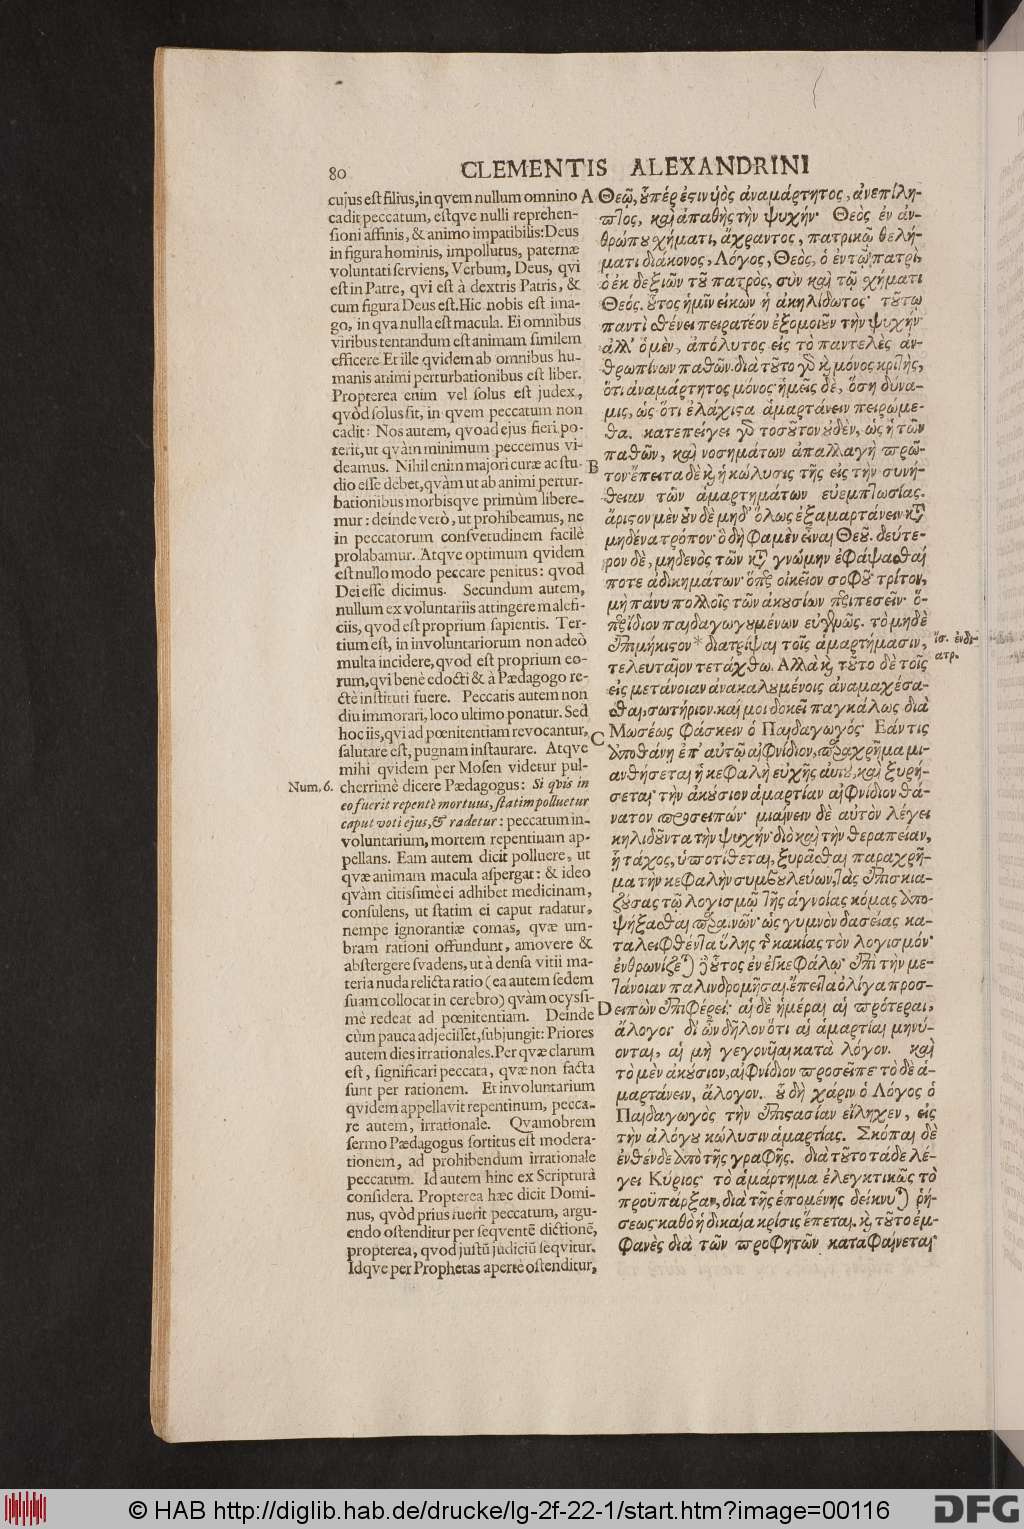 80 CLEMENTIS ALEXANDRINI
cujus est filius, in qvem nullum omnino
cadit peccatum, estqve nulli reprehen-
sioni affinis, & animo impatibilis: Deus
in figura hominis, impollutus, paternæ
voluntati serviens, Verbum, Deus, qvi
est in Patre, qvi est à dextris Patris, &
cum figura Deus est. Hic nobis est ima-
go, in qva nulla est macula. Ei omnibus
viribus tentandum est animam similem
efficere. Et ille qvidem ab omnibus hu-
manis animi perturbationibus est liber.
Propterea enim vel solus est judex,
qvòd solus sit, in qvem peccatum non
cadit: Nos autem, qvoad ejus fieri po-
terit, ut qvàm minimum peccemus vi-
deamus. Nihil enim majori curæ ac stu-
dio esse debet, qvàm ut ab animi pertur-
bationibus morbisqve primùm libere-
mur: deinde verò, ut prohibeamus, ne
in peccatorum consvetudinem facilè
prolabamur. Atqve optimum qvidem
est nullo modo peccare penitus: qvod
Dei esse dicimus. Secundum autem,
nullum ex voluntariis attingere malefi-
ciis, qvod est proprium sapientis. Ter-
tium est, in involuntariorum non adeò
multa incidere, qvod est proprium eo-
rum, qvi benè edocti & à Pædagogo re-
ctè instituti fuere. Peccatis autem non
diu immorari, loco ultimo ponatur. Sed
hoc iis, qvi ad pœnitentiam revocantur,
salutare est, pugnam instaurare. Atqve
mihi qvidem per Mosen videtur pul-
Num. 6. cherrimè dicere Pædagogus: Si qvis in
eo fuerit repentè mortuus, statim polluetur
caput voti ejus, & radetur: peccatum in-
voluntarium, mortem repentinam ap-
pellans. Eam autem dicit polluere, ut
qvæ animam macula aspergat: & ideo
qvàm citissimè ei adhibet medicinam,
consulens, ut statim ei caput radatur,
nempe ignorantiæ comas, qvæ um-
bram rationi offundunt, amovere &
abstergere svadens, ut à densa vitii ma-
teria nuda relicta ratio (ea autem sedem
suam collocat in cerebro) qvàm ocyssi-
mè redeat ad pœnitentiam. Deinde
cùm pauca adjecisset, subjungit: Priores
autem dies irrationales. Per qvæ clarum
est, significari peccata, qvæ non facta
sunt per rationem. Et involuntarium
qvidem appellavit repentinum, pecca-
re autem, irrationale. Qvamobrem
sermo Pædagogus sortitus est modera-
tionem, ad prohibendum irrationale
peccatum. Id autem hinc ex Scripturâ
considera. Propterea hæc dicit Domi-
nus, qvòd prius fuerit peccatum, argu-
endo ostenditur per seqventē dictionē,
propterea, qvod justū judiciū seqvitur.
Idqve per Prophetas apertè ostenditur,
A
B
C
D
Θεῷ, ὅπέρ ἐστιν υἱὸς ἀναμάρτητος, ἀνεπίλη-
πτος, καὶ ἀπαθὴς τὴν ψυχήν· Θεὸς ἐν ἀν-
θρώπου χήματι, ἄχραντος, πατρικῷ θελή-
ματι διάκονος, Λόγος, Θεὸς, ὁ ἐν τῷ πατρὶ,
ὁ ἐκ δεξιῶν τοῦ πατρὸς, σὺν καὶ τῷ χήματι
Θεός. οὗτος ἡμῖν εἰκὼν ἡ ἀκηλίδωτος· τούτῳ
παντὶ σθένει πειρατέον ἐξομοιοῦν τὴν ψυχήν·
ἀλλ' ὁ μὲν, ἀπόλυτος εἰς τὸ παντελὲς ἀν-
θρωπίνων παθῶν. διὰ τοῦτο γὰρ καὶ μόνος κριτὴς,
ὅτι ἀναμάρτητος μόνος· ἡμεῖς δὲ, ὅση δύνα-
μις, ὡς ὅτι ἐλάχιστα ἁμαρτάνειν πειρώμε-
θα. κατεπείγει γὰρ τοσοῦτον οὐδὲν, ὡς ἡ τῶν
παθῶν, καὶ νοσημάτων ἀπαλλαγὴ πρῶ-
τον· ἔπειτα δὲ καὶ ἡ κώλυσις τῆς εἰς τὴν συνή-
θειαν τῶν ἁμαρτημάτων εὐεμπτωσίας.
ἄριστον μὲν οὖν δὲ μηδ' ὅλως ἐξαμαρτάνειν κατὰ
μηδένα τρόπον· ὃ δὴ φαμὲν εἶναι Θεοῦ. δεύτε-
ρον δὲ, μηδενὸς τῶν κατὰ γνώμην ἐφάψασθαί
ποτε ἀδικημάτων· ὅπερ οἰκεῖον σοφοῦ· τρίτον,
μὴ πάνυ πολλοῖς τῶν ἀκουσίων περιπεσεῖν· ὅ-
περ ἴδιον παιδαγωγουμένων εὐγενῶς. τὸ μὴ δὲ
ἐπιμήκιστον * διατρίψαι τοῖς ἁμαρτήμασιν,
ἴσ. ἐνδι-
ατρ.
τελευταῖον τετάχθω. Ἀλλὰ καὶ τοῦτο δὲ τοῖς
εἰς μετάνοιαν ἀνακαλουμένοις ἀναμαχέσα-
σθαι, σωτήριον. καί μοι δοκεῖ παγκάλως διὰ
Μωσέως φάσκειν ὁ Παιδαγωγός· Ἐάν τις
ἀποθάνῃ ἐπ' αὐτῷ αἰφνίδιον, παραχρῆμα μι-
ανθήσεται ἡ κεφαλὴ εὐχῆς αὐτοῦ, καὶ ξυρή-
σεται· τὴν ἀκούσιον ἁμαρτίαν αἰφνίδιον θά-
νατον προσειπών· μιαίνειν δὲ αὐτὸν λέγει
κηλιδοῦντα τὴν ψυχήν· διὸ καὶ τὴν θεραπείαν,
ᾗ τάχος, ὑποτίθεται, ξυρᾶσθαι παραχρῆ-
μα τὴν κεφαλὴν συμβουλεύων, τὰς ἐπισκια-
ζούσας τῷ λογισμῷ τῆς ἀγνοίας κόμας ἀπο-
ψήξασθαι παραινῶν· ὡς γυμνὸν δασείας κα-
ταλειφθέντα ὕλης τῆς κακίας τὸν λογισμόν·
ἐνθρονίζεται δὲ οὗτος ἐν ἐγκεφάλῳ· ἐπὶ τὴν με-
τάνοιαν παλινδρομῆσαι. ἔπειτα ὀλίγα προσ-
ειπὼν ἐπιφέρει· αἱ δὲ ἡμέραι αἱ πρότεραι,
ἄλογοι· δι' ὧν δῆλον ὅτι αἱ ἁμαρτίαι μηνύ-
ονται, αἱ μὴ γεγονυῖαι κατὰ λόγον. καὶ
τὸ μὲν ἀκούσιον, αἰφνίδιον προσεῖπε· τὸ δὲ ἁ-
μαρτάνειν, ἄλογον. οὗ δὴ χάριν ὁ Λόγος ὁ
Παιδαγωγὸς τὴν ἐπιστασίαν εἴληχεν, εἰς
τὴν ἀλόγου κώλυσιν ἁμαρτίας. Σκόπει δὲ
ἐνθένδε ἀπὸ τῆς γραφῆς. διὰ τοῦτο τάδε λέ-
γει Κύριος· τὸ ἁμάρτημα ἐλεγκτικῶς τὸ
προϋπάρξαν, διὰ τῆς ἑπομένης δείκνυται ῥή-
σεως· καθὸ ἡ δικαία κρίσις ἕπεται. καὶ τοῦτο ἐμ-
φανὲς διὰ τῶν προφητῶν καταφαίνεται·
© HAB http://diglib.hab.de/drucke/lg-2f-22-1/start.htm?image=00116
DFG